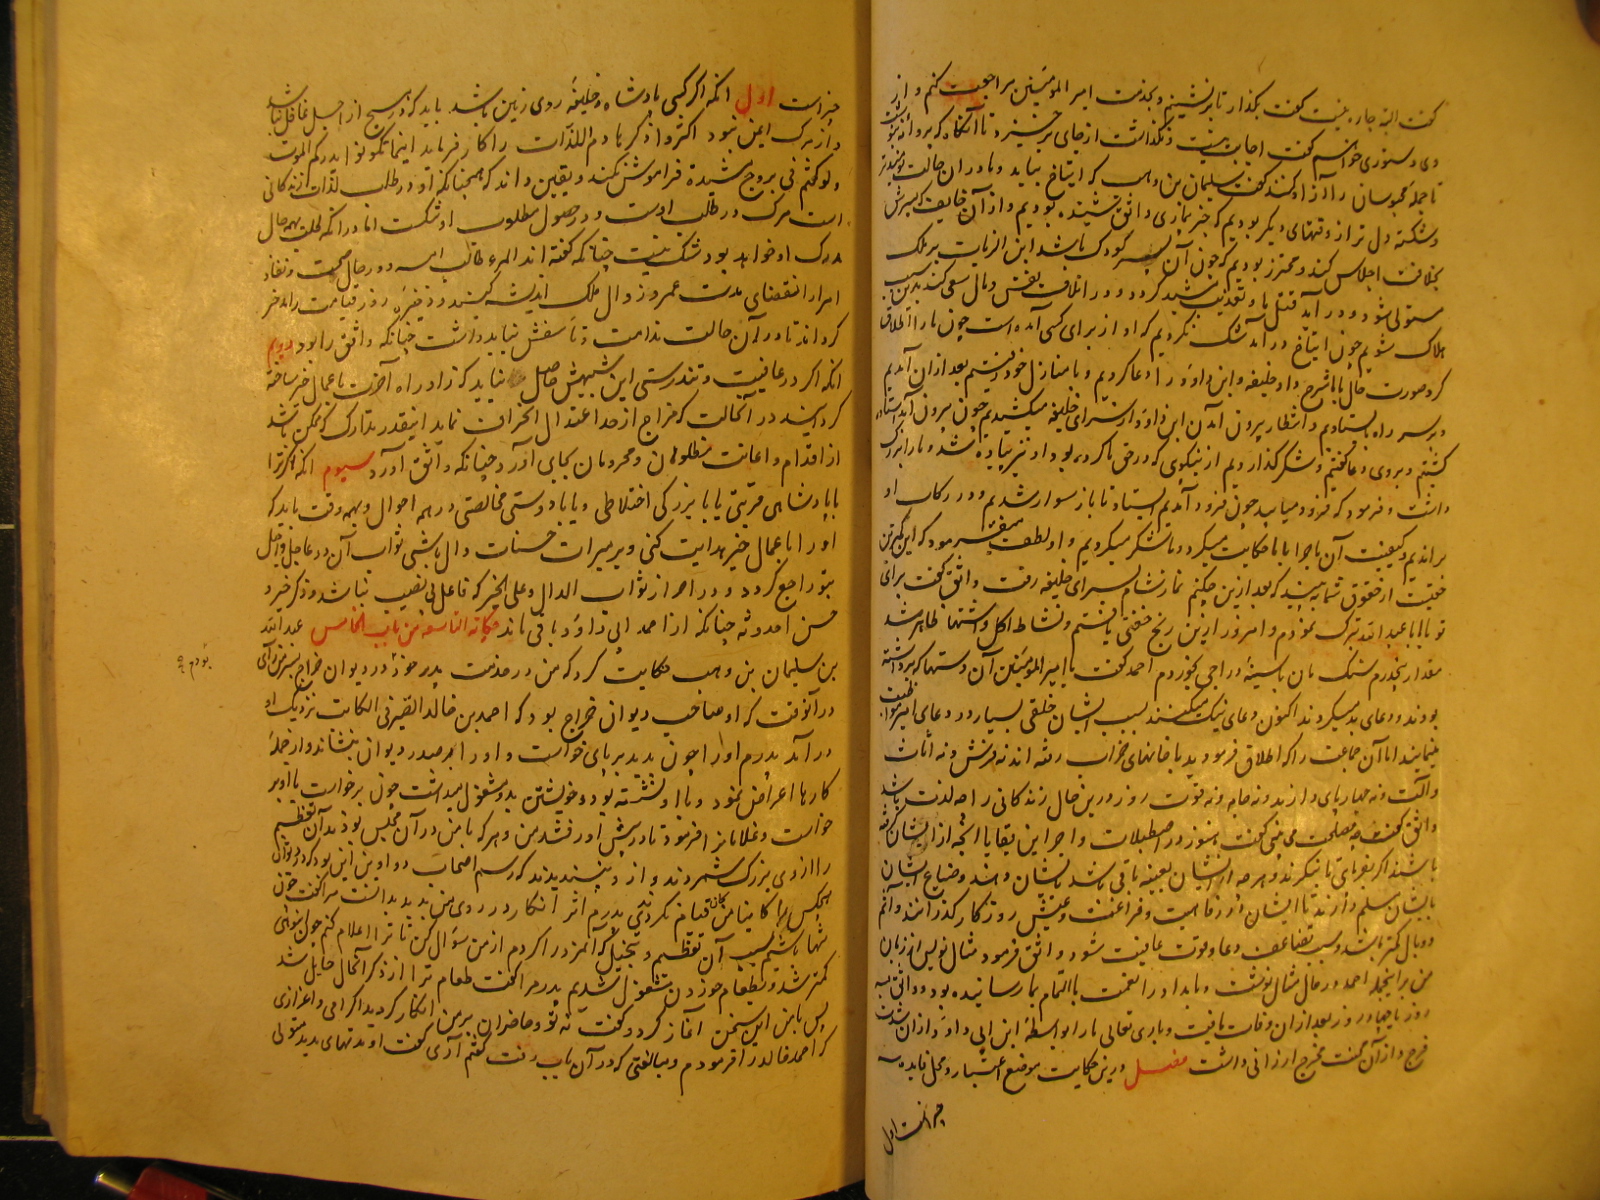 گفت البته چاره نیست گفت بگذار تا برنشینم و بخدمت امیر المؤمنین مراجعت کنم و از
وی دستوری خواهم گفت اجابت نیست و نگذاشت از جای برخیزد تا آنگاه که پروانه نبشت
تا جمله محبوسان را آزاد کنند گفت سلیمان بن وهب که ایتاخ بیاید و ما در آن حالت نومیدتر
و شکسته دل تر از وقتهای دیگر بودیم که خبر بیماری واثق شنیده بودیم و از آن خایف که پسرش
بخلافت اجلاس کنند و محترز بودیم که چون آن پسر کودک باشد ابن الزیات بر ملک
مستولی شود و در آید قتل ما و تعذیب شدید گردد و در اتلاف نفس و مال سعی کند بدین سبب
هلاک شویم چون ایتاخ در آمد شک نکردیم که او از برای کسی آمده است چون ما را اطلاق
کرد صورت حال با ما شرح داد خلیفه و ابن داود را دعا کردیم و با منازل خود رفتیم بعد از آن آمدیم
و بر سر راه بایستادیم و انتظار بیرون آمدن ابن داود از سرای خلیفه میکشیدیم چون بیرون آمد پیاده
گشتیم و بروی دعا گفتیم و شکر گذاردیم از نیکوی که در حق ما کرده بود او نیز پیاده شد و ما را بزرگ
داشت و فرمود که فرود میایید چون فرود آمدیم بایستاد تا باز سوار شدیم و در رکاب او
براندیم و کیفیت آن ماجرا با ما حکایت میکرد و ما شکر میکردیم و او لطف میفرمود که این کمترین
حقیست از حقوق شما ببینید که بعد ازین چکنم نماز شام بسرای خلیفه رفت واثق گفت برای
تو یا با عبد الله تبرک نمودم و امروز ازین رنج خفتی یافتم و نشاط اکل و اشتها ظاهر شد
مقدار پنجدرم سنگ نان با سینهٔ دراجی بخوردم احمد گفت یا امیر المؤمنین آن دستها که برداشته
بودند و دعای بد میکردند اکنون دعای نیک میکنند بسبب ایشان خلقی بسیار در دعای امیر موافقت
مینمایند اما آن جماعت را که اطلاق فرمودید با خانهای خراب رفته اند نه فرش و نه اثاث
و آلت و نه چهارپای دارند و نه جامه و نه قوت روز و درین حال زندگانی را چه لذت باشد
واثق گفت چه مصلحت می بینی گفت هنوز در اصطبلات و اجر این بقایا آنچه از ایشان گرفته
باشند اگر بفرمای تا بنگرند و هر چه از ایشان بعینه باقی باشد بایشان دهند و ضیاع ایشان
بایشان مسلم دارند تا ایشان در رفاهیت و فراغت و عیش روزگار گذرانند و اثم
و وبال کمتر باشد و سبب تضاعف دعا و قوت عافیت شود واثق فرمود مثال نویس از زبان
من بر اینجمله احمد در حال مثال نوشت و بامداد را نعمت ما بالتمام بما رسانیده بود و واثق بسه
روز یا چهار روز بعد ازان وفات یافت و باری تعالی ما را بواسطهٔ ابن ابی داود از ان شدت
فرج و از آن محنت مخرج ارزانی داشت فصل درین حکایت موضع اعتبار و محل فایده سه
چیزاست اول
چیزاست اول انکه اگر کسی پادشاه و خلیفه روی زمین باشد باید که در هیچ از اجل غافل نباشد
و از مرگ ایمن نبود اکثروا ذکر هادم اللذات را کار فرماید اینما تکونوا یدرککم الموت
و لو کنتم فی بروج مشیدة فراموش نکند و یقین داند که همچنانکه او در طلب لذات زندگانی
است مرگ در طلب اوست و در حصول مطلوب او شکست اما در انکه ملک بهمه حال
مدرک او خواهد بود شک نیست چنانکه گفته اند المرء طالب امسه و در حال صحت و نفاذ
امر از انقضای مدت عمر و زوال ملک اندیشه کند و ذخیرهٔ روز قیامت را مدخر
گرداند تا در ان حالت ندامت و تاسفش نباید داشت چنانکه واثق را بود دویم
انکه اگر در عافیت و تندرستی این شبهش حاصل نیاید که زاد راه آخرت با عمال خیر ساخته
گرداند در آنحالت که مزاج از حد اعتدال انحراف نماید اینقدر تدارک که ممکن باشد
از اقدام و اعانت مظلومان و محرومان بجای آورد چنانکه واثق آورد سیوم انکه اگر ترا
با پادشاهی قربتی یا با بزرگی اختلاطی و یا با دوستی مخالصتی در همه احوال و بهمه وقت باید که
او را با عمال خیر هدایت کنی و بر مبرات حسنات دال باشی ثواب آن در عاجل و اجل
بتو راجع گردد و در احراز ثواب الدال علی الخیر کفاعل بی نصیب نباشد و ذکر خیر و
حسن احدوثه چنانکه از احمد ابی داود باقی ماند حکایة التاسعه من باب الخامس عبد الله
بن سلیمان بن وهب حکایت کرد که من در خدمت پدر خود در دیوان خراج بسر من رآی بودم
در آنوقت که او صاحب دیوان خراج بود که احمد بن خالد الصیرفی الکاتب نزدیک او
در آمد پدرم او را چون بدید بر پای خواست و او را بر صدر دیوان بنشاند و از جملهٔ
کارها اعراض نمود و با او بنشسته بود و خویشتن بدو مشغول میداشت چون برخواست با او بر
خواست و غلامانرا فرمود تا در پیش او رفتند من و هر که با من در آن مجلس بودند آن تعظیم
را از وی بزرگ شمردند و از وی نپسندیدند که رسم اصحاب دواوین این بود که در دیوان
هیچکس را کاینا من کان قیام نکردندی پدرم اثر انکار در روی من بدید بدانست مرا گفت چون
تنها باشم سبب آن تعظیم و تبجیل که آنمرد را کردم از من سؤال کن تا ترا اعلام کنم چون انبوهی
کمتر شد و بطعام خوردن مشغول شدیم پدر مرا گفت طعام ترا از ذکر آنحال حایل شد
پس با من این سخن آغاز کرد و گفت نه تو و حاضران بر من انکار کردید اکرامی و اعزازی
که احمد خالد را فرمودم و مبالغتی که در آن باب رفت گفتم آری گفت او مدتهای مدید متولی